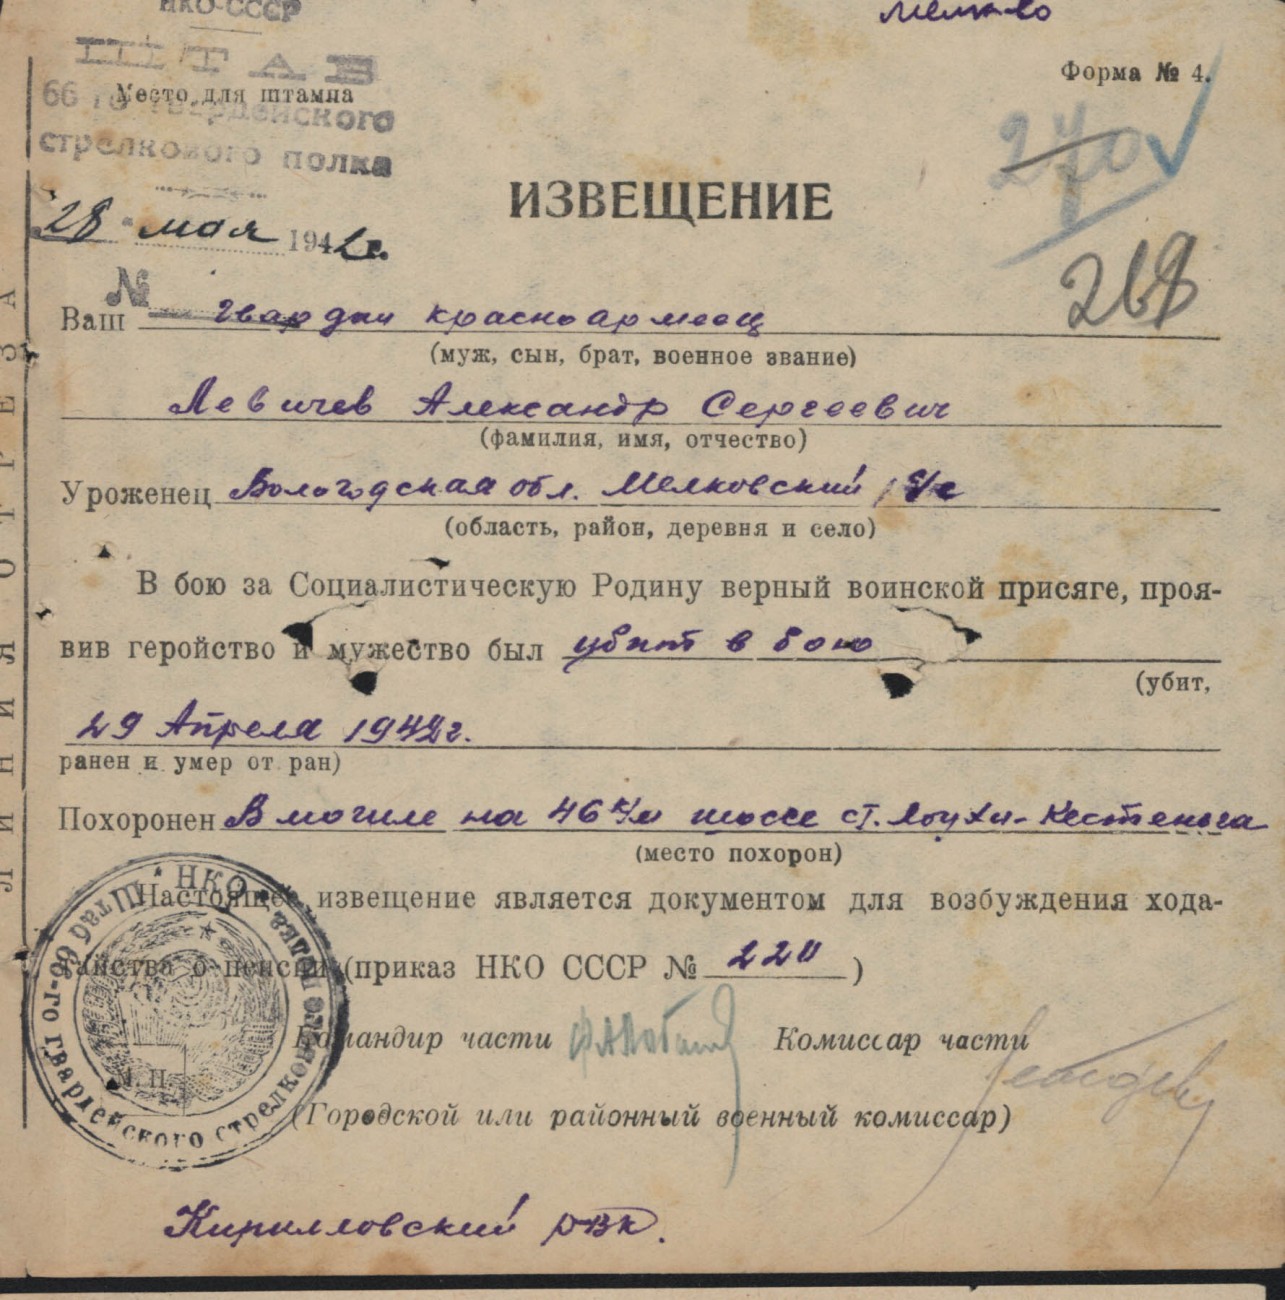 НКО-СССР
Мелково
ШТАБ
Форма № 4.
Место для штампа
66 го гвардейского
стрелкового полка
270
ИЗВЕЩЕНИЕ
"28" мая 1942г.
268
№
Ваш гвардии красноармеец
(муж, сын, брат, военное звание)
Левичев Александр Сергеевич
(фамилия, имя, отчество)
Уроженец Вологодская обл. Мелковский с/с
(область, район, деревня и село)
В бою за Социалистическую Родину верный воинской присяге, проя-
вив геройство и мужество был убит в бою
(убит,
29 Апреля 1942г.
ранен и умер от ран)
Похоронен В могиле на 46 км шоссе ст. Лоухи-Кестеньга
(место похорон)
Настоящее извещение является документом для возбуждения хода-
тайства о пенсии (приказ НКО СССР № 220)
Командир части Комиссар части
М. П.
(Городской или районный военный комиссар)
НКО * Штаб 66-го гвардейского стрелкового полка
Кирилловский РВК.
ЛИНИЯ ОТРЕЗА